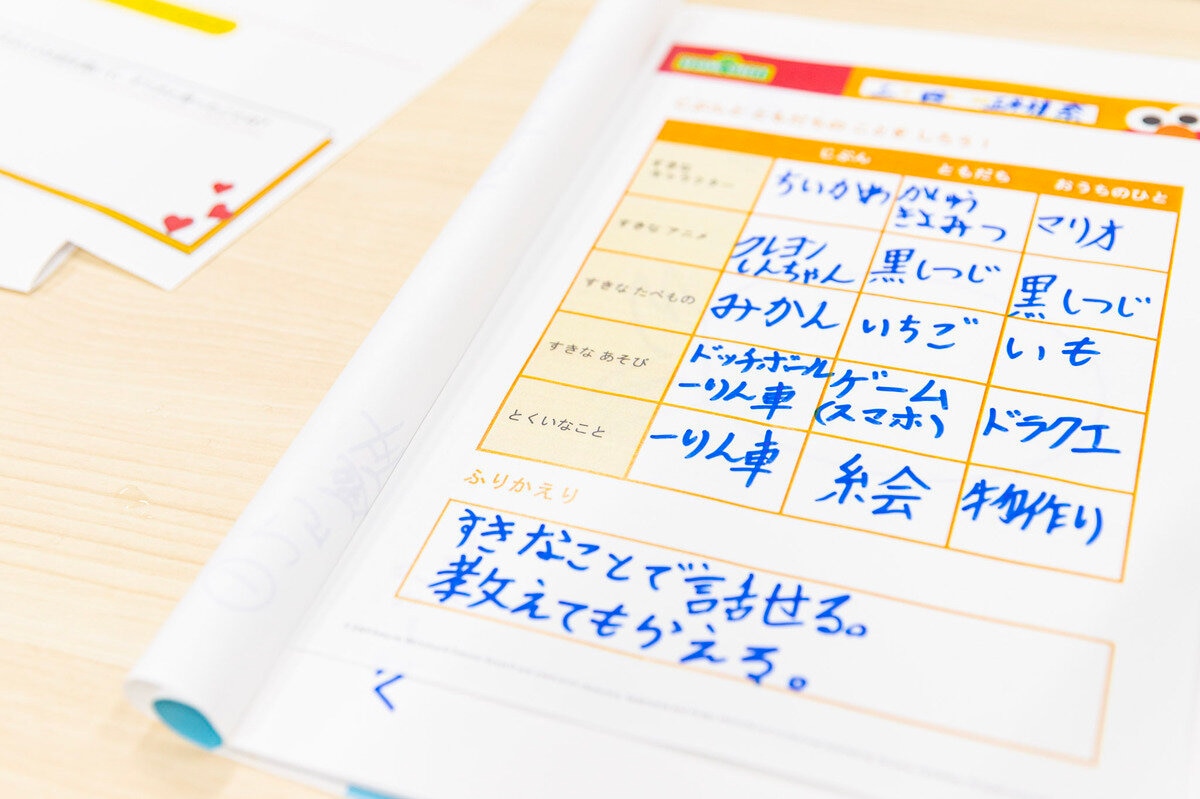 じぶん ともだち おうちのひと
すきな
キャラクター
ちいかわ
かゆう
きよみつ
マリオ
すきな アニメ
クレヨン
しんちゃん
黒しつじ
黒しつじ
すきな たべもの
みかん
いちご
いも
すきな あそび
ドッチボール
一りん車
ゲーム
(スマホ)
ドラクエ
とくいなこと
一りん車
絵
物作り
ふりかえり
すきなことで話せる。
教えてもらえる。